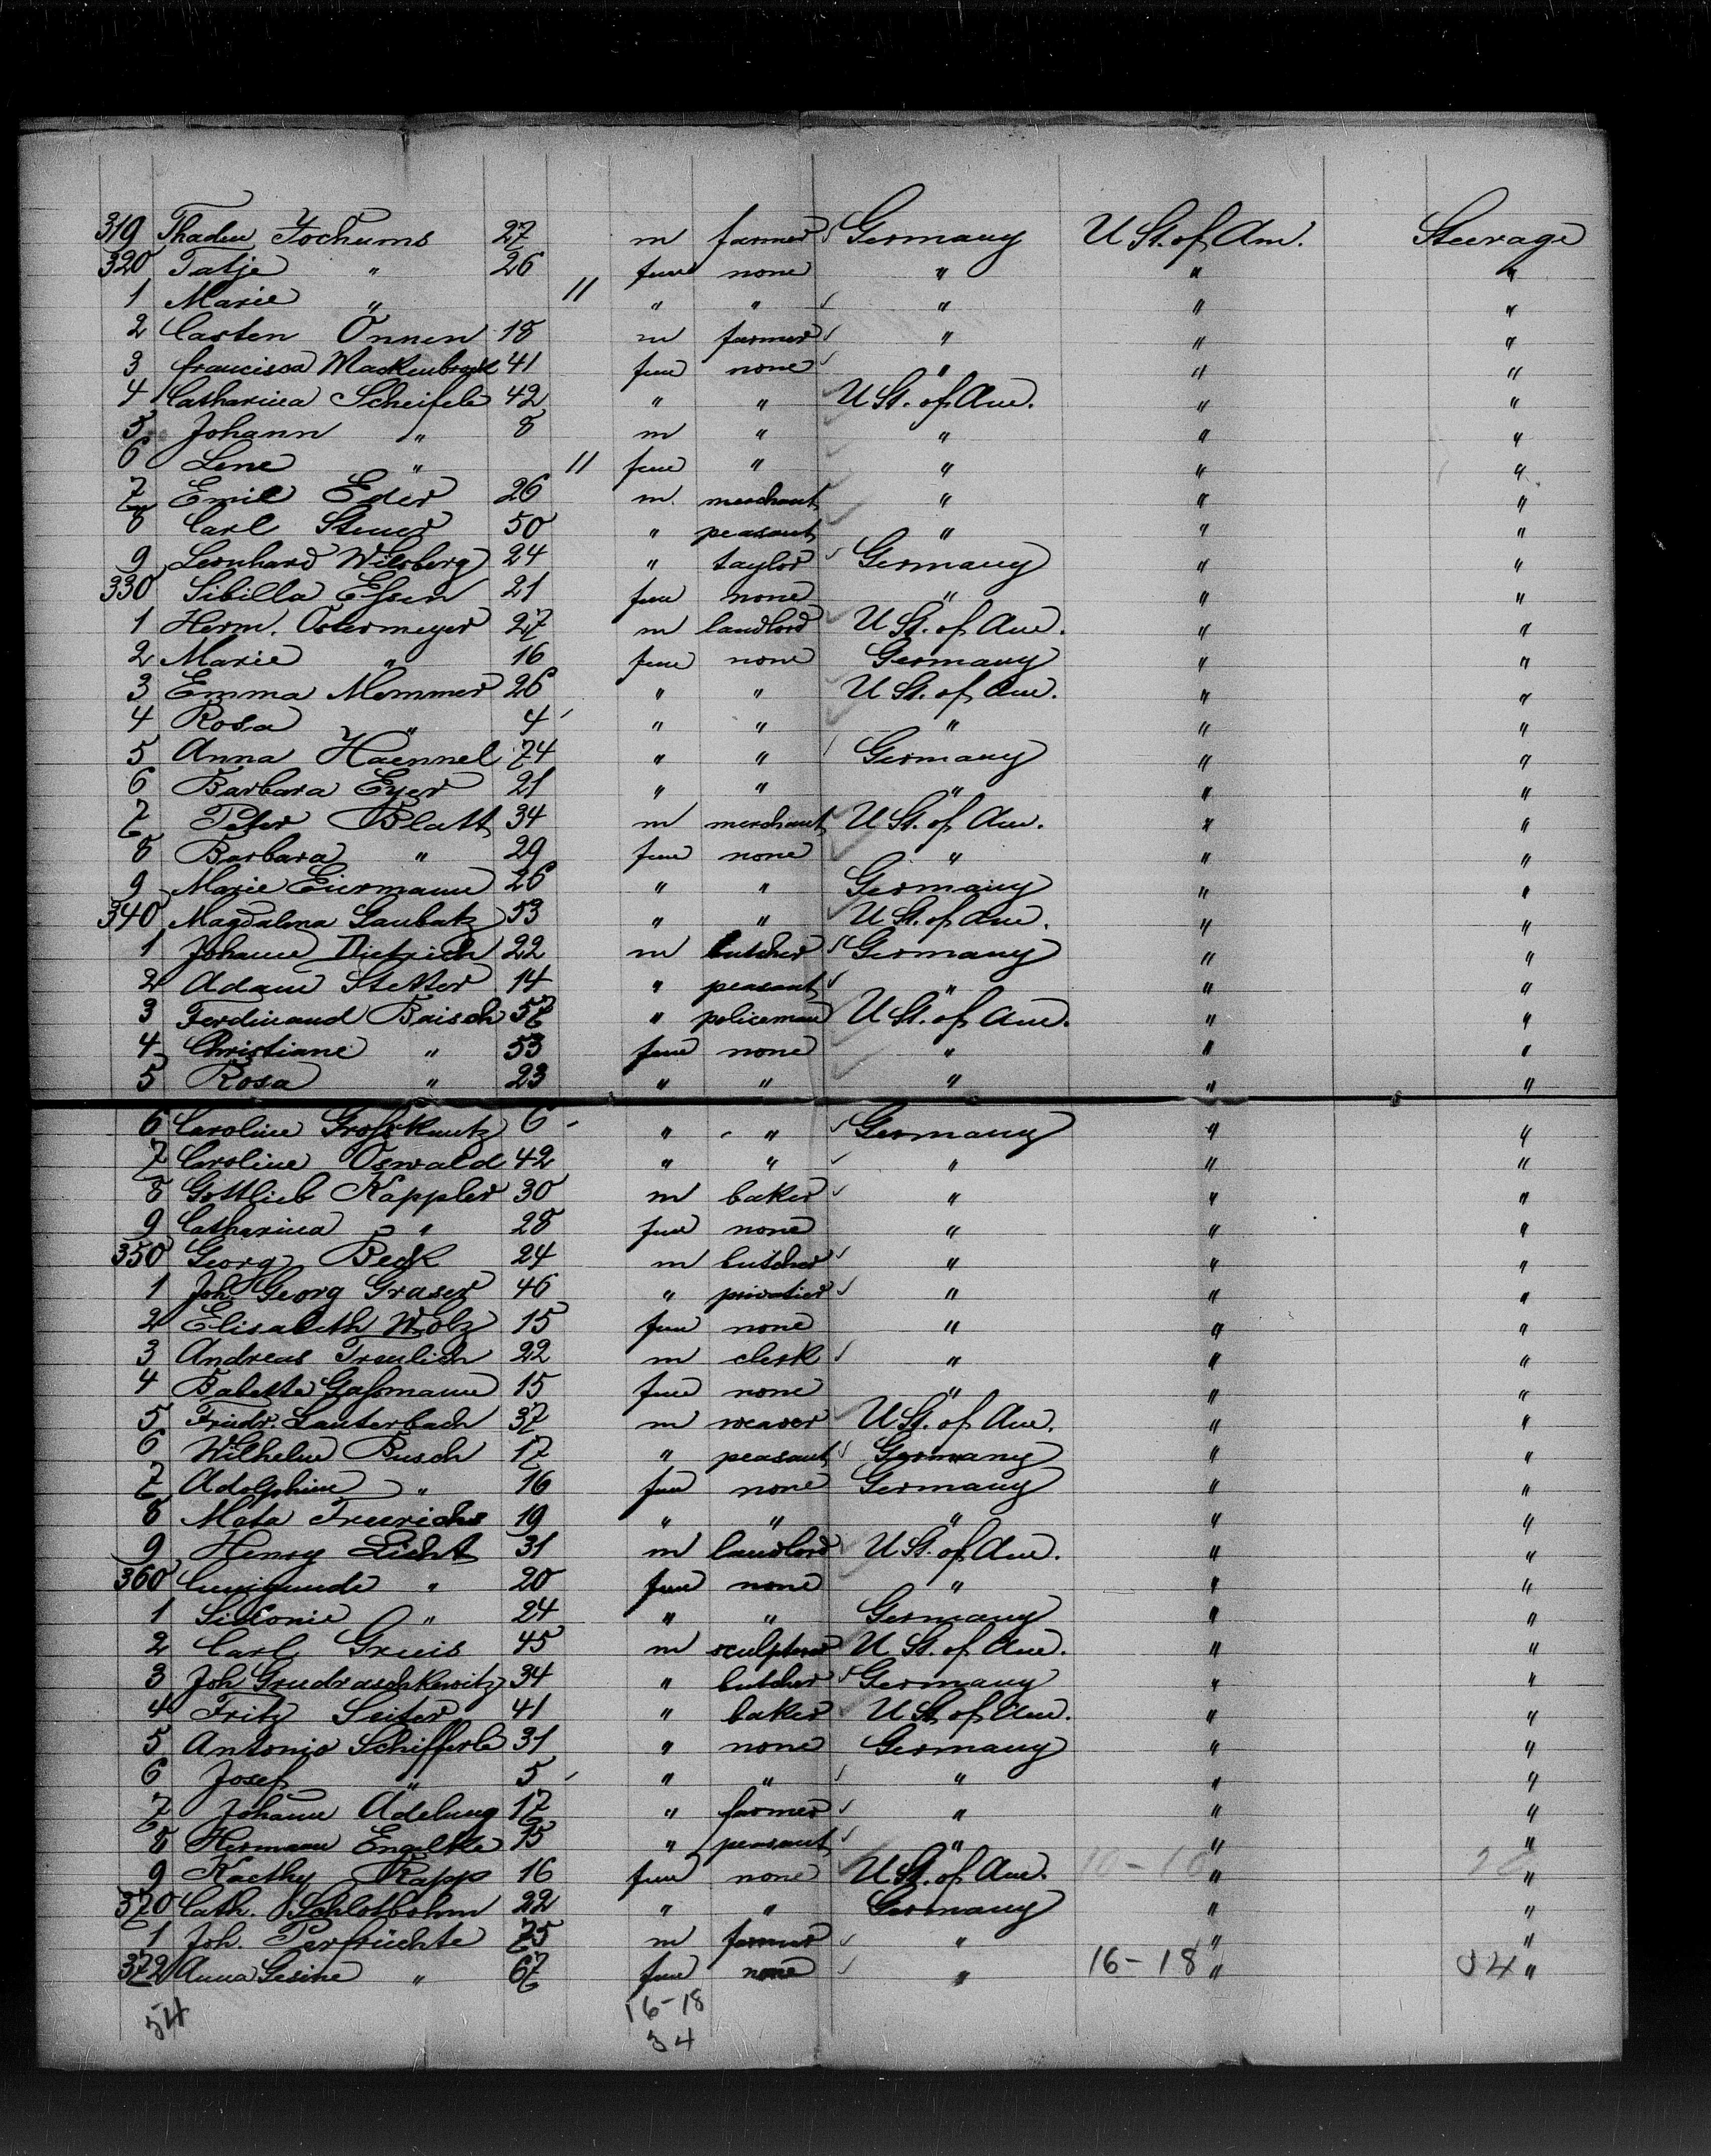 319 Thaden Jochums 27 m farmer Germany U St. of Am. Steerage
320 Tatje " 26 fem none " " "
1 Marie " 11 " " " " "
2 Carsten Onnen 18 m farmer " " "
3 Francisca Mackenbrock 41 fem none " " "
4 Catharina Scheifele 42 " " U St. of Am. " "
5 Johann " 8 m " " " "
6 Lene " 11 fem " " " "
7 Emil Eder 26 m. merchant " " "
8 Carl Steuer 50 " peasant " " "
9 Leonhard Wilsberg 24 " taylor Germany " "
330 Sibilla Essen 21 fem none " " "
1 Herm. Ostermeyer 27 m landlord U St. of Am. " "
2 Marie " 16 fem none Germany " "
3 Emma Memmer 26 " " U St. of Am. " "
4 Rosa " 4 " " " " "
5 Anna Haennel 74 " " Germany " "
6 Barbara Eyer 21 " " " " "
7 Peter Blatt 34 m merchant U St. of Am. " "
8 Barbara " 29 fem none " " "
9 Marie Eiermann 26 " " Germany " "
340 Magdalena Laubatz 53 " " U St. of Am. " "
1 Johann Dietrich 22 m butcher Germany " "
2 Adam Stetter 14 " peasant " " "
3 Ferdinand Baisch 57 " policeman U St. of Am. " "
4 Christiane " 53 fem none " " "
5 Rosa " 23 " " " " "
6 Caroline Grosskantz 6 " " Germany " "
7 Caroline Oswald 42 " " " " "
8 Gottlieb Kappler 30 m baker " " "
9 Catharina " 28 fem none " " "
350 Georg Beck 24 m butcher " " "
1 Joh. Georg Graser 46 " privatier " " "
2 Elisabeth Wolz 15 fem none " " "
3 Andreas Treulich 22 m clerk " " "
4 Babette Gassmann 15 fem none " " "
5 Friedr. Lauterbach 37 m weaver U St. of Am. " "
6 Wilhelm Busch 17 " peasant Germany " "
7 Adolphine " 16 fem none Germany " "
8 Meta Freerichs 19 " " " " "
9 Henry Licht 31 m landlord U St. of Am. " "
360 Cunigunde " 20 fem none " " "
1 Sidonie " 24 " " Germany " "
2 Carl Greis 45 m sculpturer U St. of Am. " "
3 Joh Grudraschkewitz 34 " butcher Germany " "
4 Fritz Seiter 41 " baker U St. of Am. " "
5 Antonio Schifferle 31 " none Germany " "
6 Josef " 5 " " " " "
7 Johann Adelung 17 " farmer " " "
8 Hermann Engelke 15 " peasant " " "
9 Kaethy Rapp 16 fem none U St. of Am. " "
370 Cath. Schlotbohm 22 " " Germany " "
1 Joh. Perfrüchte 75 m farmer " " "
372 Anna Gesine " 67 fem none " 16-18 " 34 "
54 16-18
34